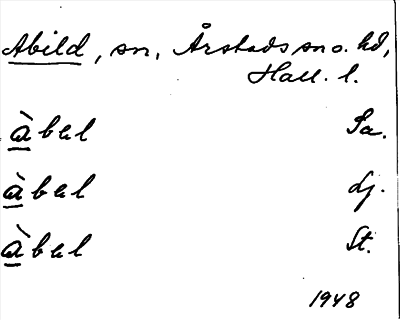 Abild, sn, Årstads sn o. hd,
Hall. l.
àbəl Sa.
àbəl Lj.
àbəl St.
1948